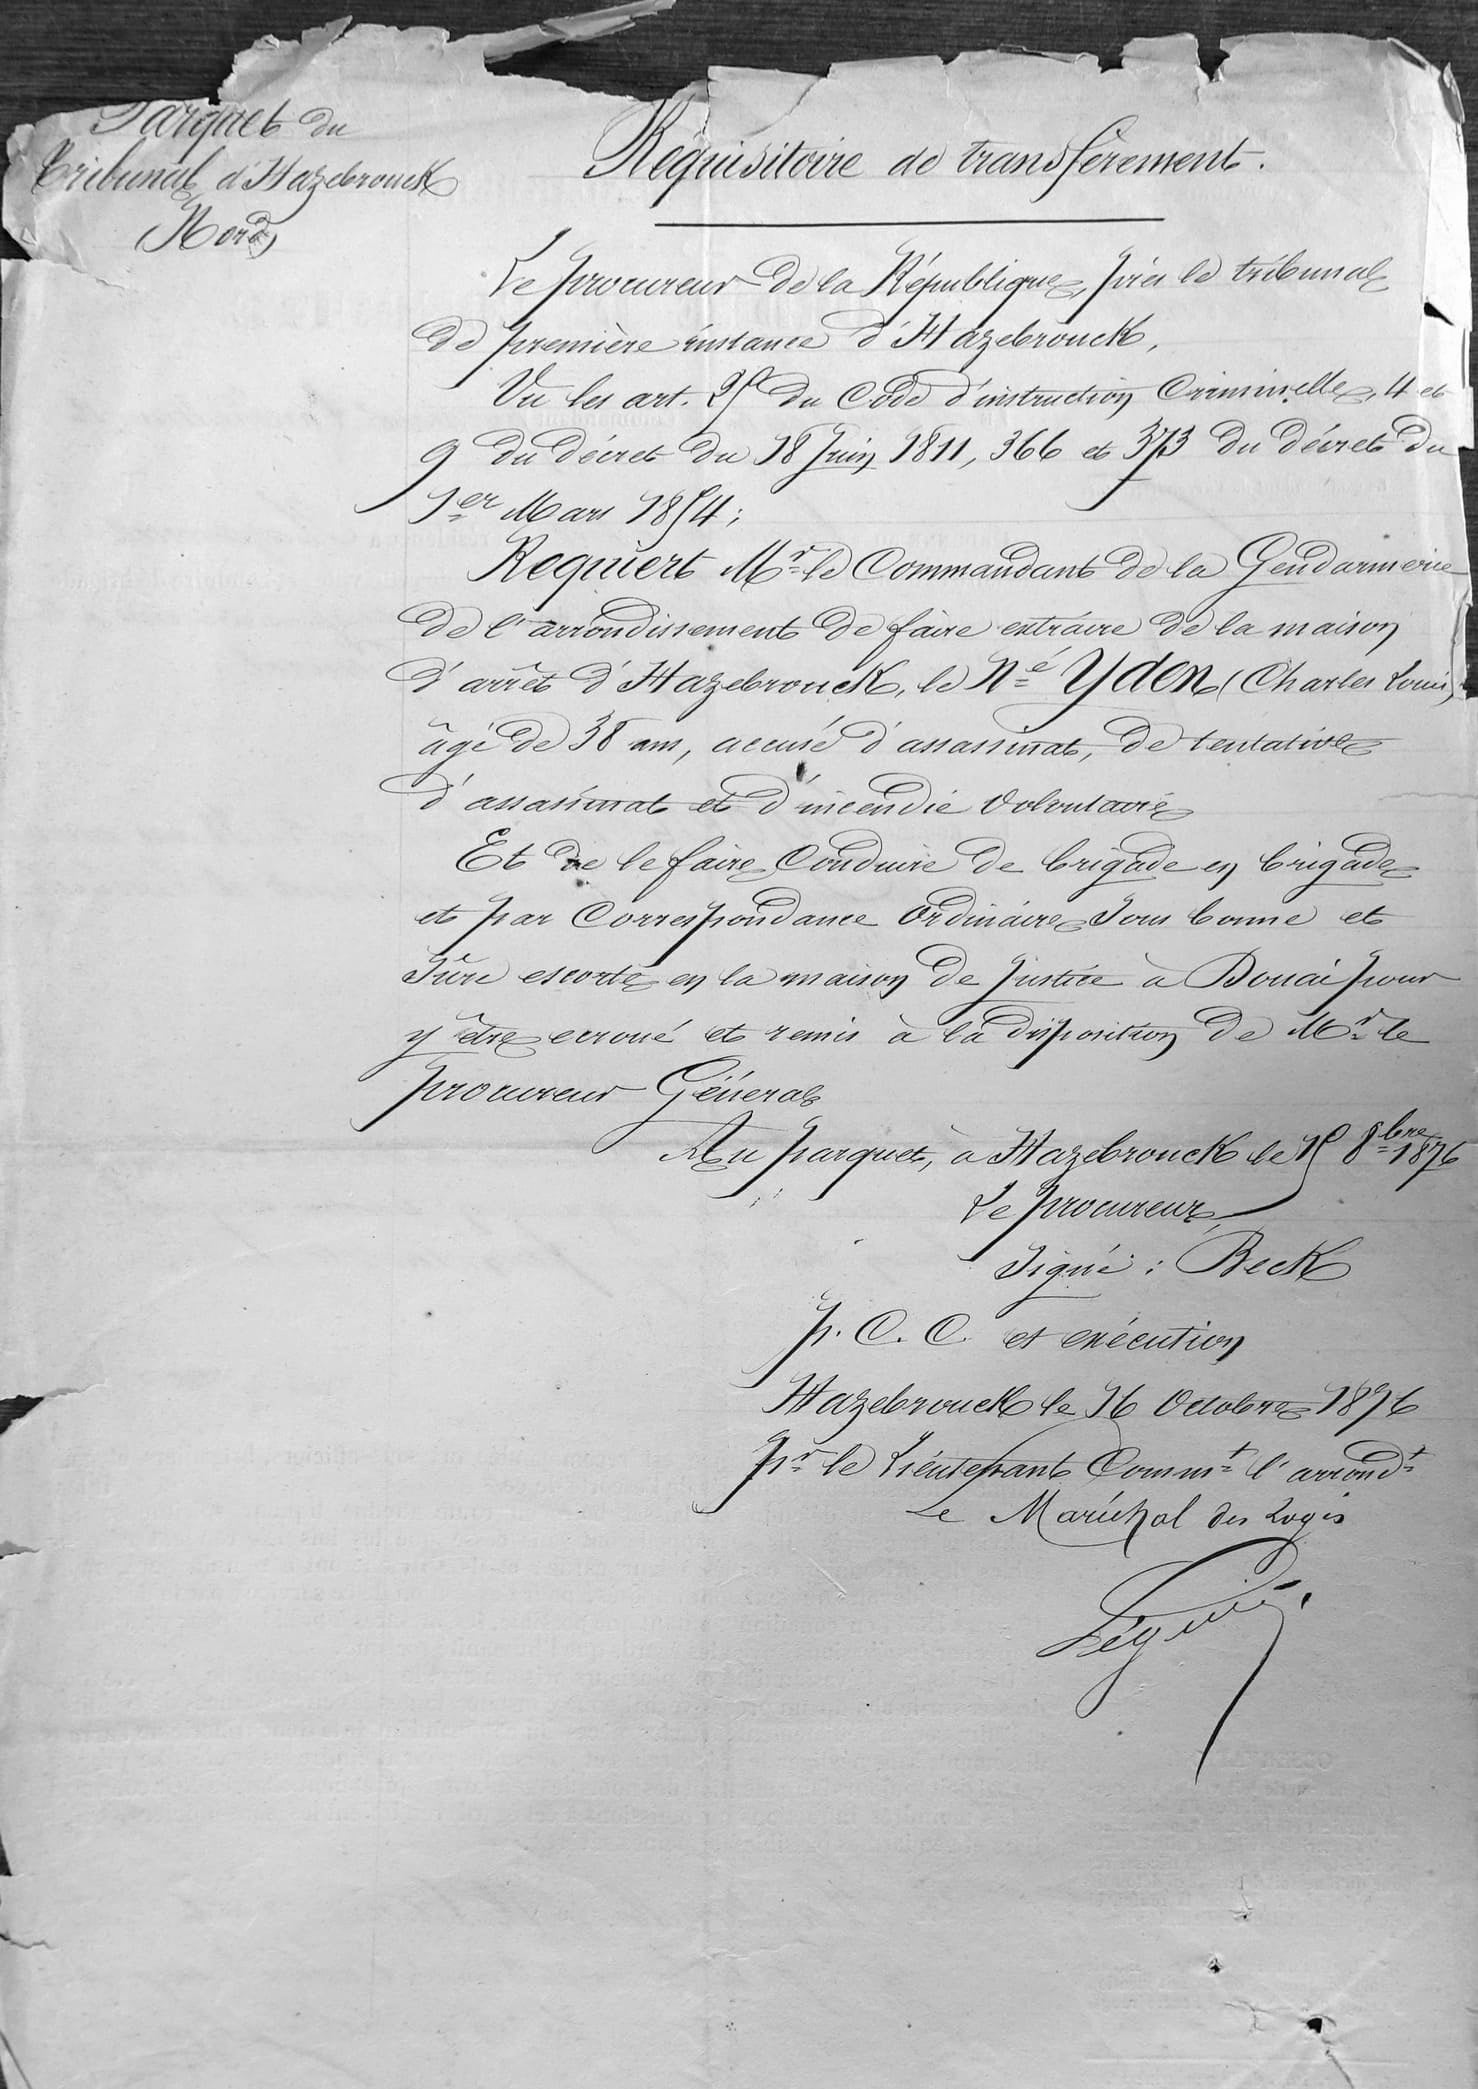 Parquet du
Tribunal d'Hazebrouck
(Nord)
Réquisitoire de transfèrement.
Le procureur de la République, près le tribunal
de première instance d'Hazebrouck,
Vu les art. 25 du Code d'instruction Criminelle, 4 et
9 du décret du 18 Juin 1811, 366 et 373 du décret du
1er Mars 1854;
Requiert Mr le Commandant de la Gendarmerie
de l'arrondissement de faire extraire de la maison
d'arrêt d'Hazebrouck, le Né Yden (Charles Louis),
âgé de 38 ans, accusé d'assassinat, de tentative
d'assassinat et d'incendie volontaire
Et de le faire conduire de brigade en brigade
et par Correspondance Ordinaire sous bonne et
sûre escorte en la maison de Justice à Douai pour
y être écroué et remis à la disposition de Mr le
procureur Général
Au parquet, à Hazebrouck le 15 8bre 1876
Le procureur,
Signé : Beck
p. C. C. et exécution
Hazebrouck le 16 Octobre 1876
Pr le Lieutenant Commt l'arrondt
Le Maréchal des Logis